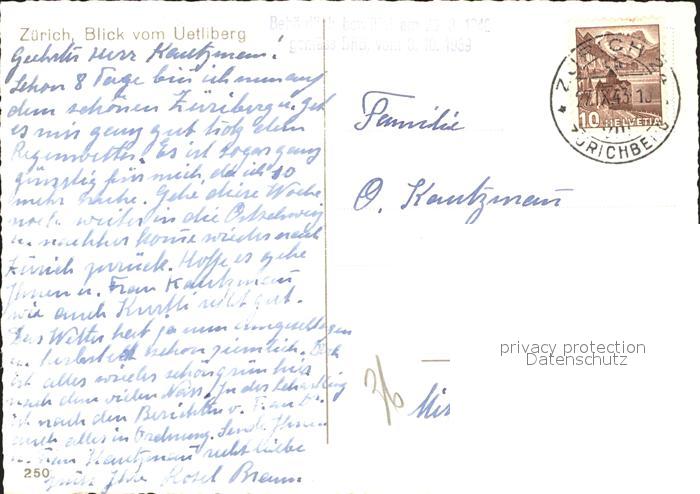 Zürich, Blick vom Uetliberg
Geehrter Herr Kautzmann!
Schon 8 Tage bin ich nun auf
dem schönen Züriberg u. geht
es mir ganz gut trotz dem
Regenwetter. Es ist sogar ganz
günstig für mich, da ich so
mehr ruhe. Gehe diese Woche
noch weiter in die Ostschweiz
u. nachher komme wieder nach
Zürich zurück. Hoffe es gehe
Ihnen u. Frau Kautzmann
wie auch Kurtli recht gut.
Das Wetter hat ja nun umgeschlagen
u. herbstelt schon ziemlich. Doch
ist alles wieder schön grün hier
nach dem vielen Nass. In der
ist nach den Berichten v. Frau
auch alles in Ordnung. Sende Ihnen
u. Frau Kautzmann recht liebe
Grüsse Ihre Rosel Braun
250
Behördlich bewilligt am
gemäss BRB. vom 3. 10. 1939
ZÜRICH
IX.43
ZÜRICHBERG
10 HELVETIA
Familie
O. Kautzmann
36
Mis
privacy protection
Datenschutz